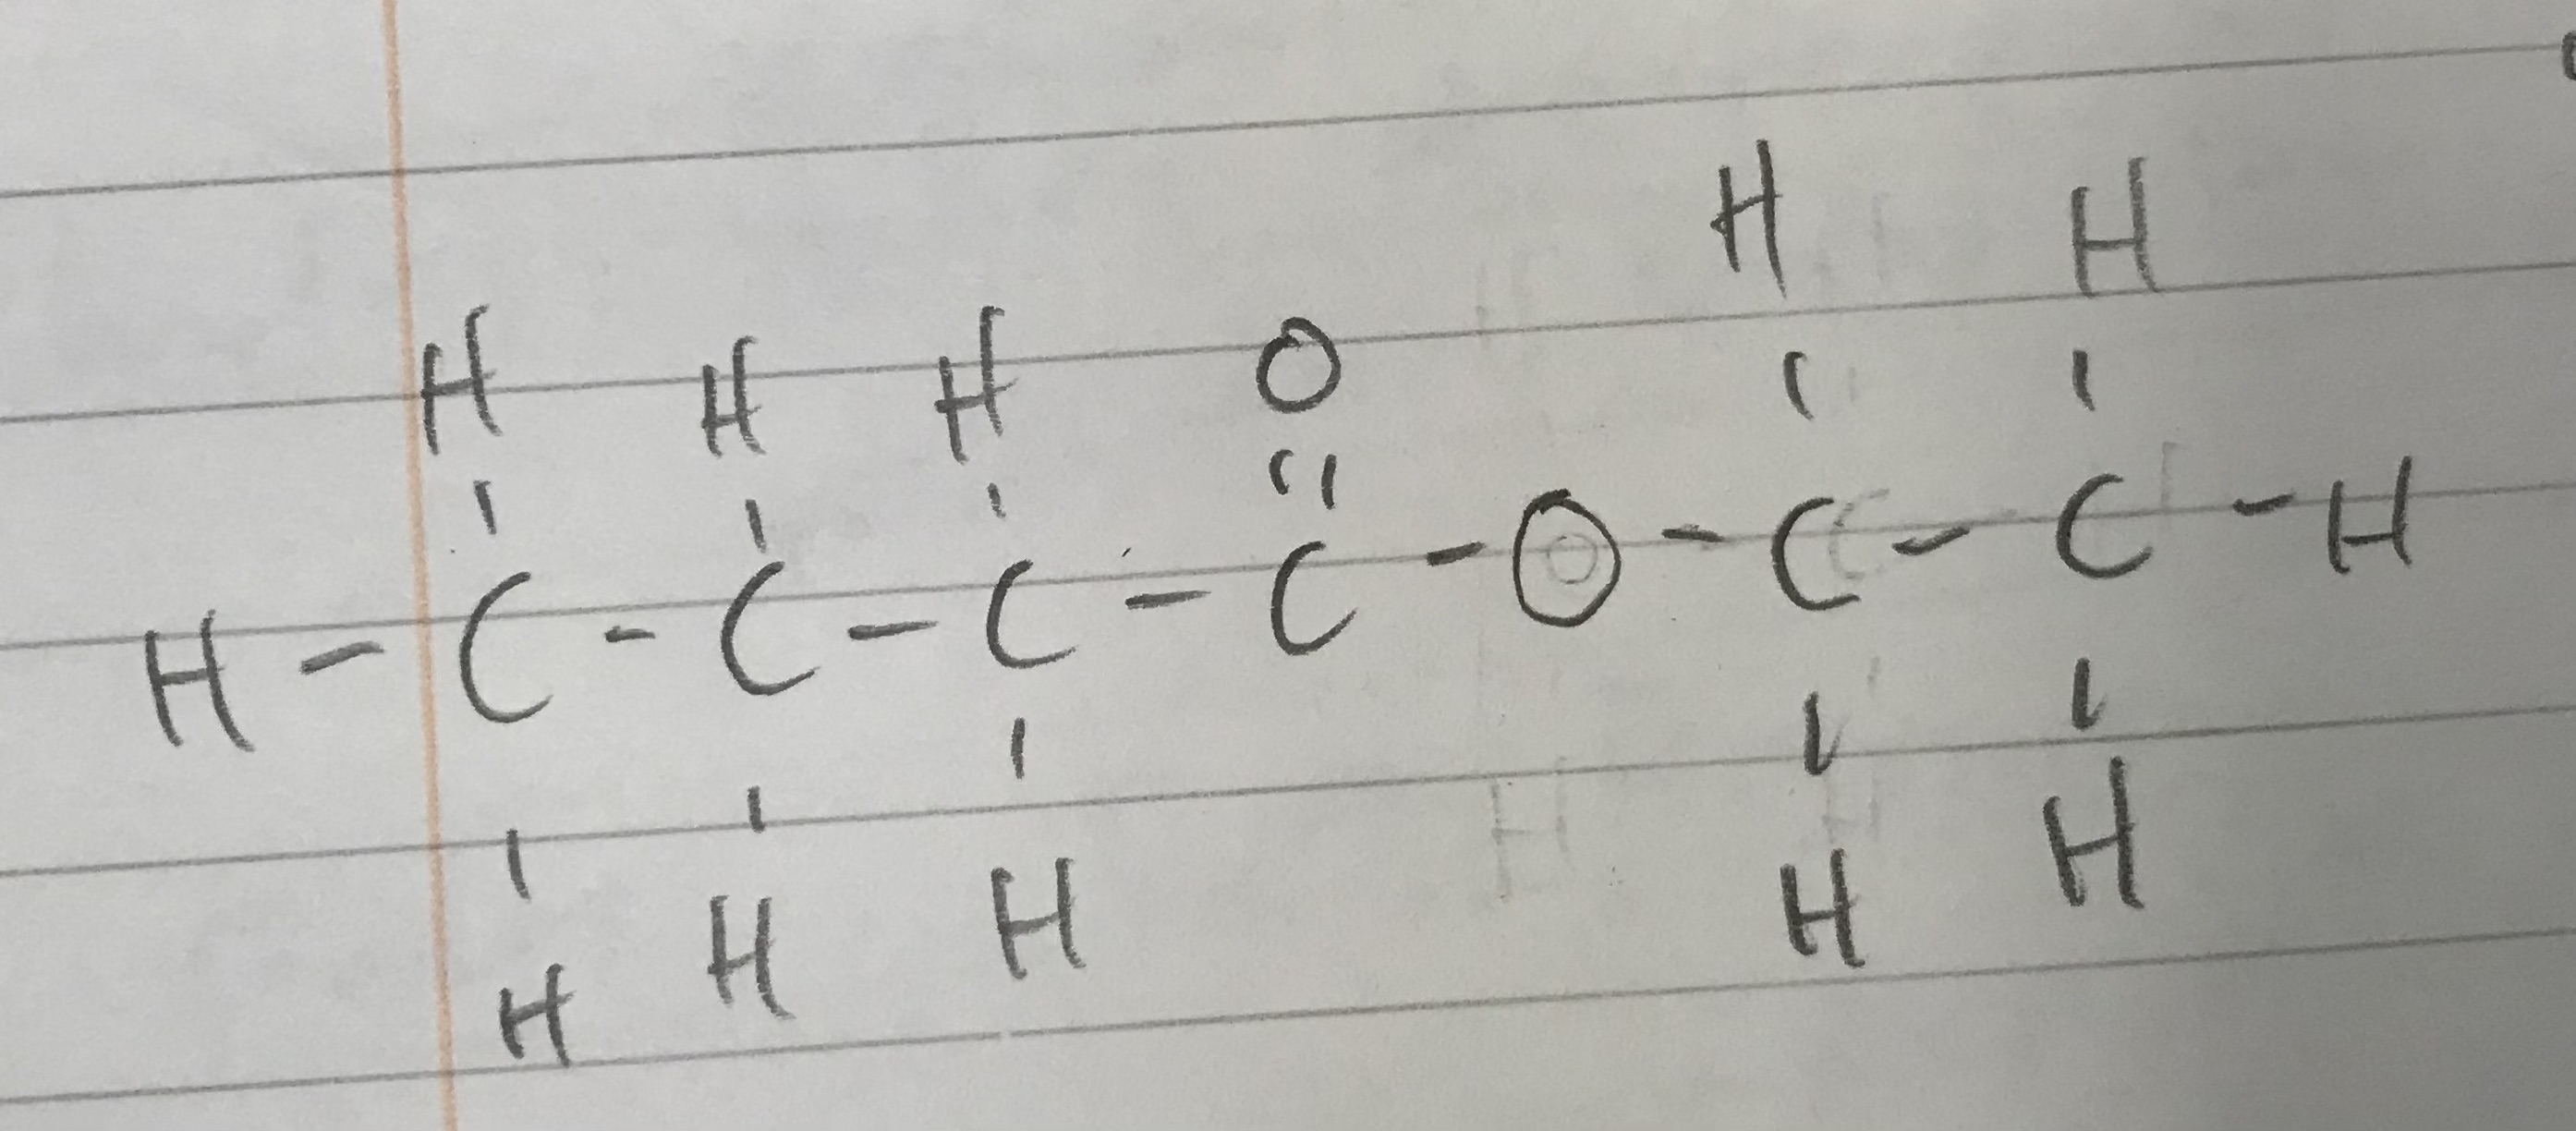 H H
H H H O
H - C - C - C - C - O - C - C - H
H H H H H